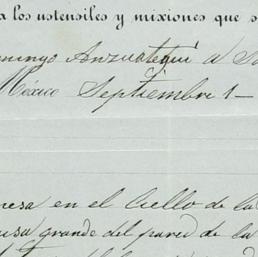 a los ustensiles y mixiones que s
mingo Anzuategui á S
Mexico Septiembre 1 -
resa en el Cuello de la
usa grande del pared de la